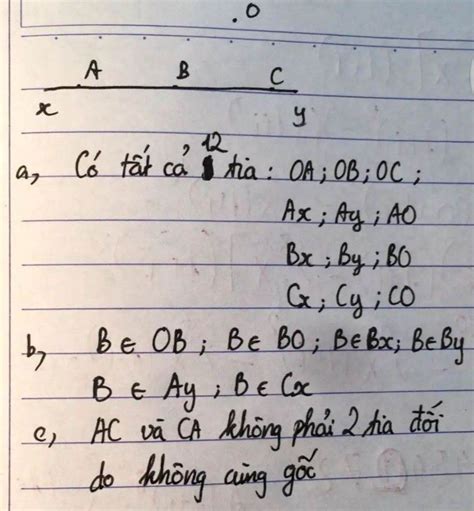 . O
A B C
x y
a, Có tất cả 12 tia : OA ; OB ; OC ;
Ax ; Ay ; AO
Bx ; By ; BO
Cx ; Cy ; CO
b, B ∈ OB ; B ∈ BO ; B ∈ Bx ; B ∈ By
B ∈ Ay ; B ∈ Cx
c, AC và CA không phải 2 tia đối
do không cùng gốc